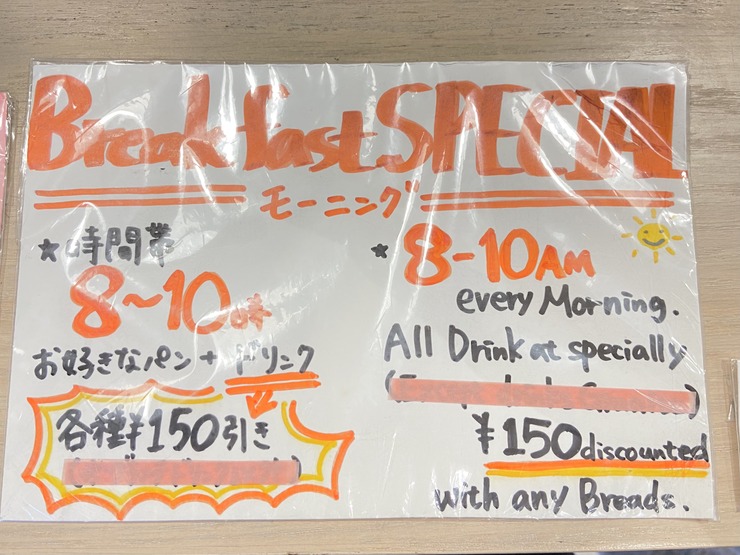 Breakfast SPECIAL
モーニング
★時間帯
8〜10時
お好きなパン + ドリンク
各種¥150引き
★ 8-10AM
every Morning.
All Drink at specially
¥150 discounted
with any Breads.